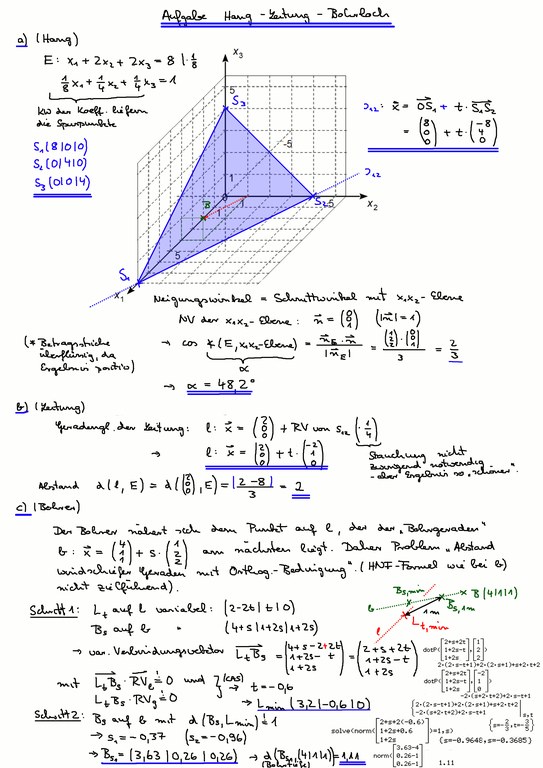 Aufgabe Hang - Leitung - Bohrloch
a) (Hang)
E: x₁ + 2x₂ + 2x₃ = 8 | · 1/8
1/8 x₁ + 1/4 x₂ + 1/4 x₃ = 1
KW der Koeff. liefern
die Spurpunkte
S₁(8|0|0)
S₂(0|4|0)
S₃(0|0|4)
x₃
5
S₃
-5
1
0
1
B
S₂
5
x₂
5
S₁
x₁
S₁₂: x⃗ = OS₁ + t · S₁S₂
= (8 0 0) + t · (-8 4 0)
S₁₂
Neigungswinkel = Schnittwinkel mit x₁x₂-Ebene
NV der x₁x₂-Ebene: n⃗ = (0 0 1) (|n⃗| = 1)
(* Betragsstriche
überflüssig, da
Ergebnis positiv)
→ cos ∡(E, x₁x₂-Ebene) =* n⃗E · n⃗ / |n⃗E| = (1 2 2) · (0 0 1) / 3 = 2/3
α
→ α = 48,2°
b) (Leitung)
Geradengl. der Leitung: l: x⃗ = (2 0 0) + RV von S₁₂ (· 1/4)
→ l: x⃗ = (2 0 0) + t · (-2 1 0)
Stauchung nicht
zwingend notwendig
- aber Ergebnis so „schöner“.
Abstand d(l, E) = d((2 0 0), E) = |2-8| / 3 = 2
c) (Bohrer)
Der Bohrer nähert sich dem Punkt auf l, der der „Bohrgeraden“
b: x⃗ = (4 1 1) + s · (1 2 2) am nächsten liegt. Daher Problem „Abstand
windschiefer Geraden mit Orthog.-Bedingung“. (HNF-Formel wie bei b)
nicht zielführend).
Schritt 1: Lt auf l variabel: (2-2t | t | 0)
Bs auf b " (4+s | 1+2s | 1+2s)
→ var. Verbindungsvektor LtBs = (4+s-2+2t 1+2s-t 1+2s) = (2+s+2t 1+2s-t 1+2s)
b
Bs,min
B(4|1|1)
1m
Bs,1m
Lt,min
l
mit LtBs · RVb = 0 und
LtBs · RVg = 0
(CAS)
→ t = -0,6
→ Lmin (3,2 | -0,6 | 0)
dotP([2+s+2t 1+2s-t 1+2s],[1 2 2])
2·(2·s-t+1)+2·(2·s+1)+s+2·t+2
dotP([2+s+2t 1+2s-t 1+2s],[-2 1 0])
-2·(s+2·t+2)+2·s-t+1
Schritt 2: Bs auf b mit d(Bs, Lmin) = 1
→ s₁ = -0,37 (s₂ = -0,96)
→ Bs₁ = (3,63 | 0,26 | 0,26) → d(Bs₁ (4|1|1)) = 1,11
(Bohrtiefe)
solve(norm([2+s+2(-0.6) 1+2s+0.6 1+2s])=1,s)
{s=-0.9648, s=-0.3685}
norm([3.63-4 0.26-1 0.26-1])
1.11